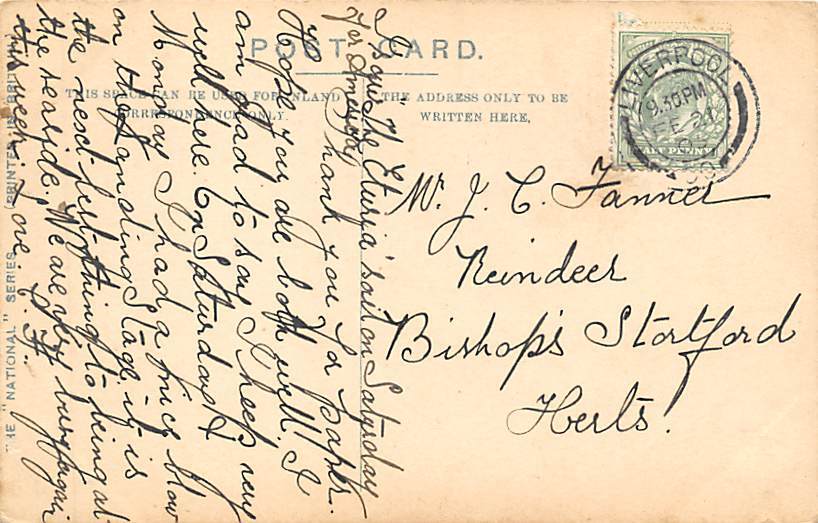 POST CARD.
THIS SPACE CAN BE USED FOR INLAND
CORRESPONDENCE ONLY.
THE ADDRESS ONLY TO BE
WRITTEN HERE.
THE "NATIONAL" SERIES
PRINTED IN BRITAIN
LIVERPOOL
9.30 PM
FE 21
HALFPENNY
Mr. J. C. Tanner
Reindeer
Bishop's Stortford
Herts.
The Eturia sails on Saturday
for America
Thank you for paper.
Hope you are both well. I
am glad to say I keep very
well here. On Saturday &
Monday I had a nice blow
on the Landing Stage. it is
the next best thing to being at
the seaside. We are very busy again
this week. Love.